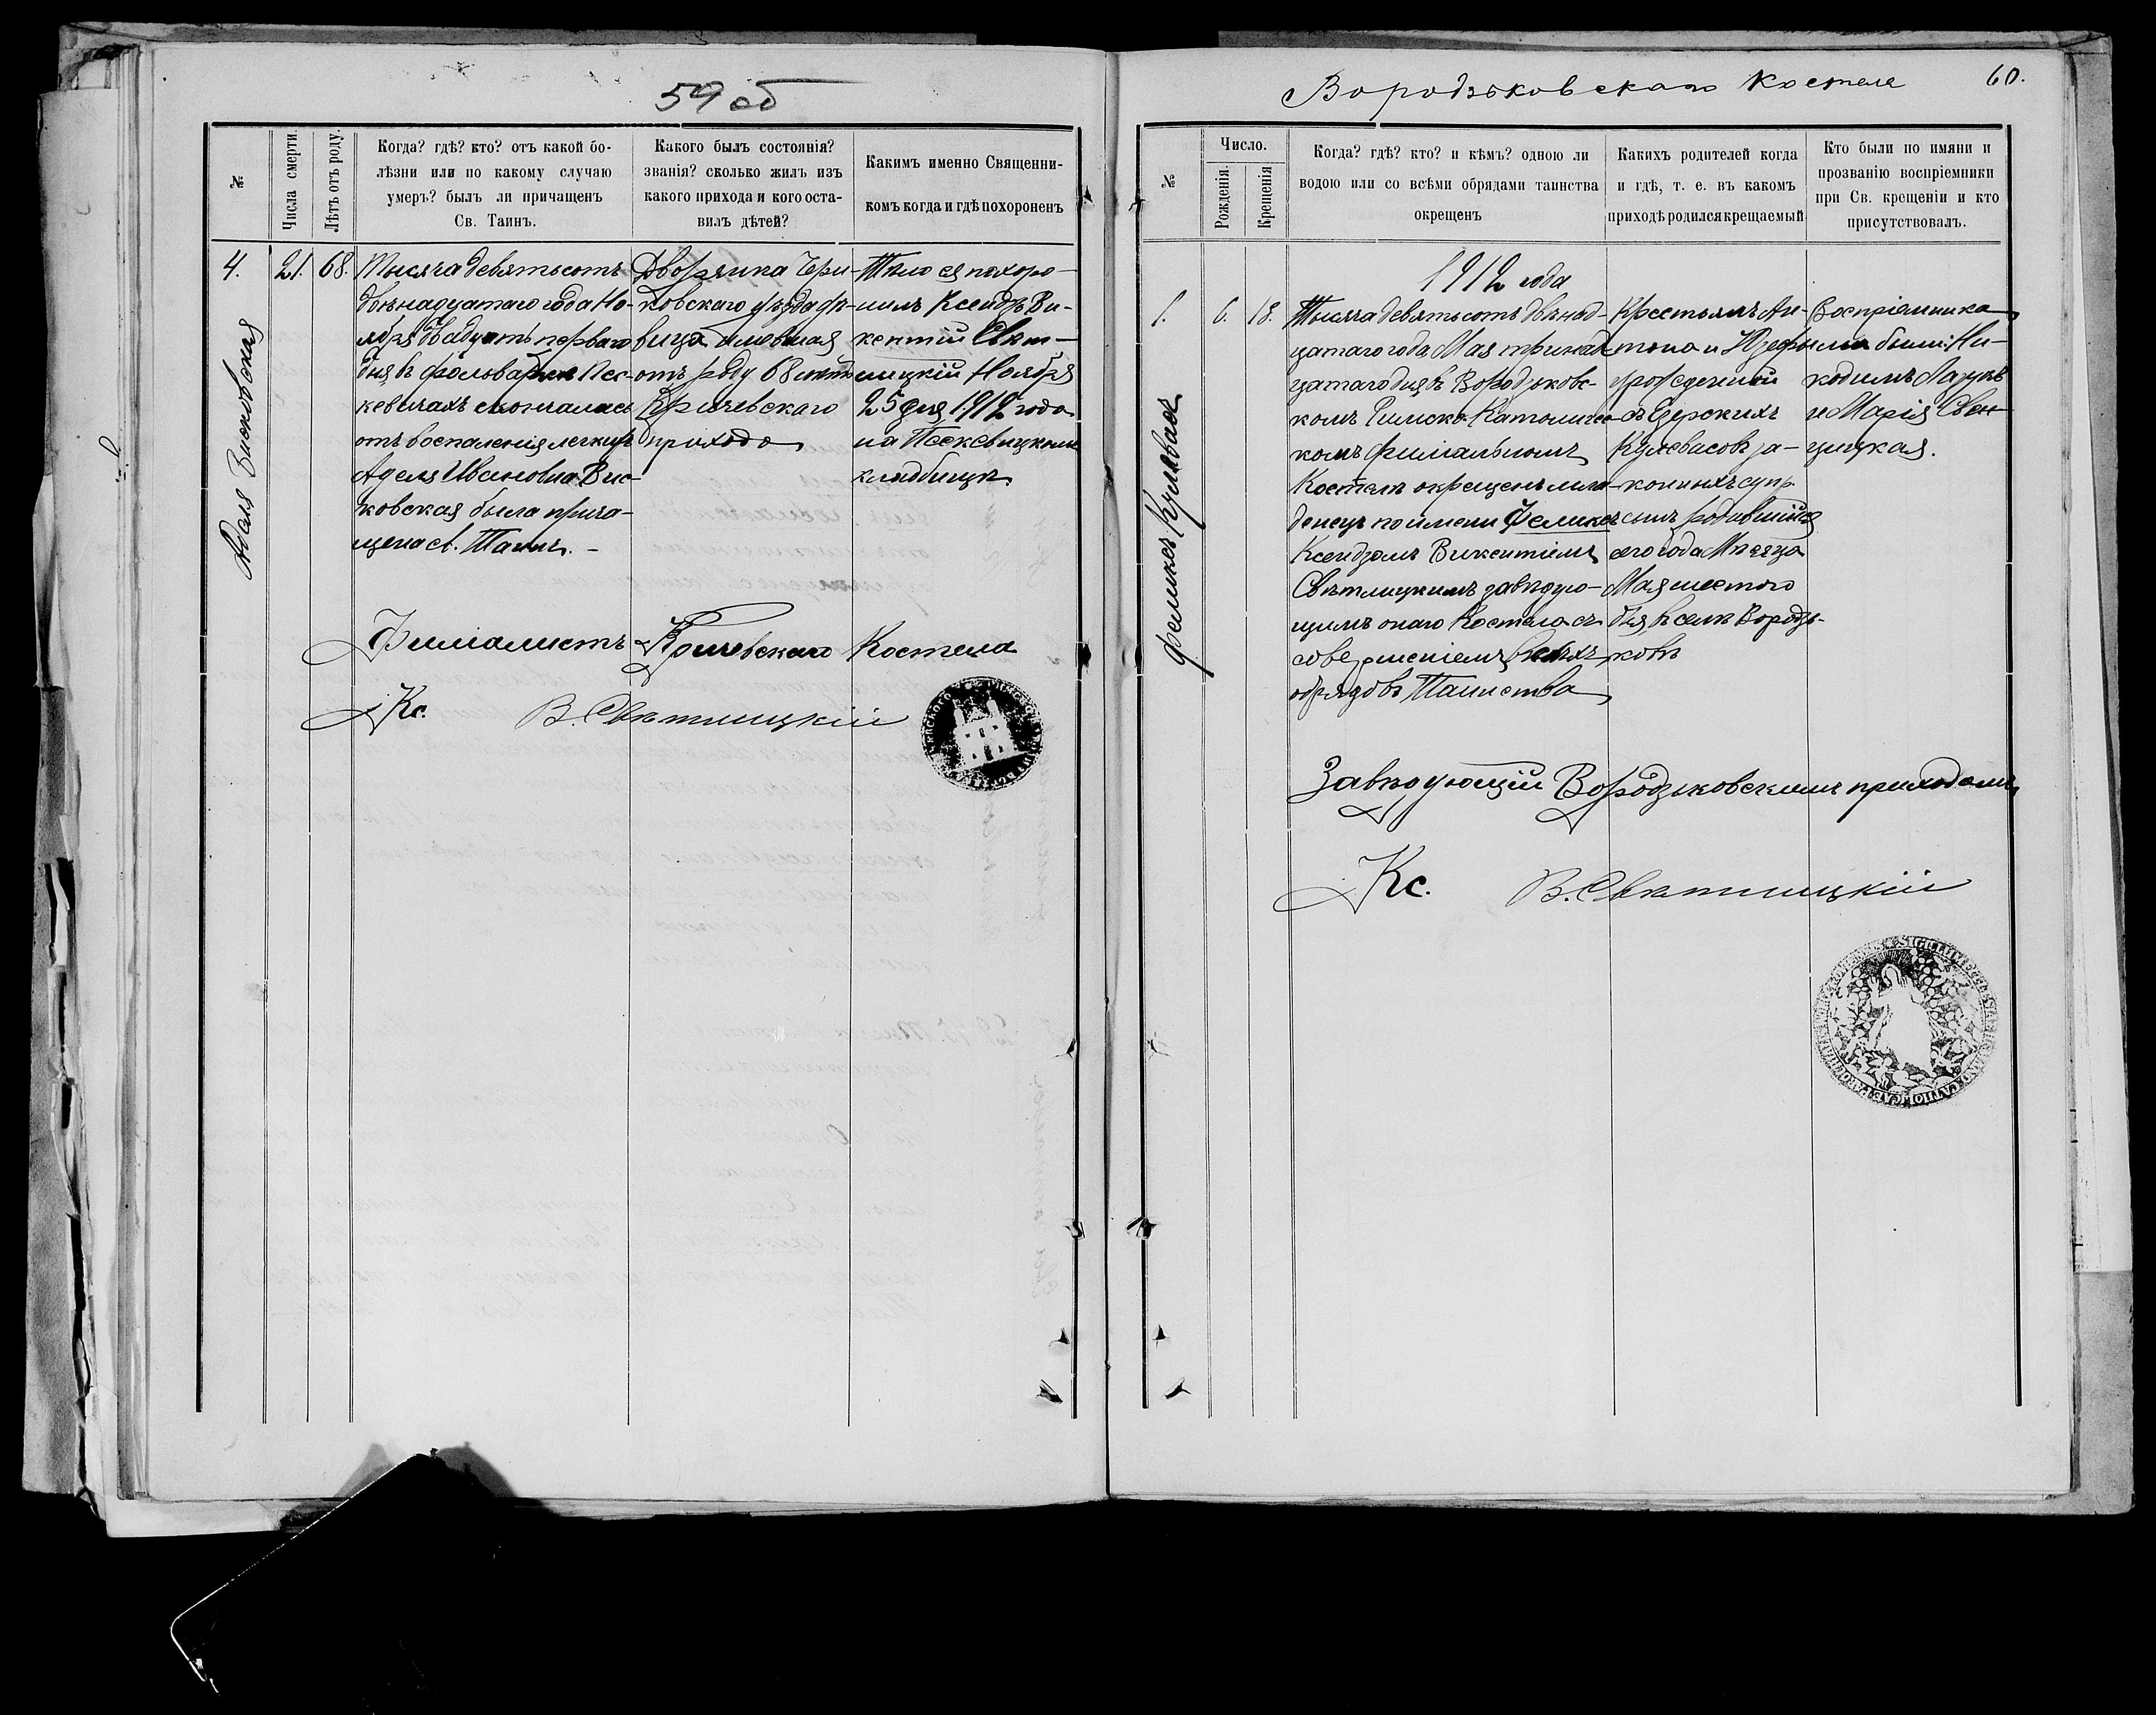 59 об
№
Числа смерти.
Лѣтъ отъ роду.
Когда? гдѣ? кто? отъ какой бо-
лѣзни или по какому случаю
умеръ? былъ ли причащенъ
Св. Таинъ.
Какого былъ состоянія?
званія? сколько жилъ изъ
какого прихода и кого оста-
вилъ дѣтей?
Какимъ именно Священни-
комъ когда и гдѣ похороненъ
4.
21.
68.
Аделя Висковская
Тысяча девятьсотъ
двѣнадцатаго года Но-
ября двадцать перваго
дня въ фольваркѣ Пес-
кевичахъ скончалась
отъ воспаленія легкихъ
Аделя Ивановна Вис-
ковская была прича-
щена св. Таинъ. –
Дворянка Чери-
ковскаго уѣзда дѣ-
вица имевшая
отъ роду 68 лѣтъ
Кричевскаго
прихода
Тѣло ея похоро-
нилъ Ксендзъ Ви-
кентій Свѣт-
лицкій Ноября
25 дня 1912 года
на Пескевицкомъ
кладбищѣ.
Филіалистъ Кричевскаго Костела
Кс. В. Свѣтлицкій
Вородьковскаго Костела
60.
№
Число.
Рожденія.
Крещенія
Когда? гдѣ? кто? и кѣмъ? одною ли
водою или со всѣми обрядами таинства
окрещенъ
Какихъ родителей когда
и гдѣ, т. е. въ какомъ
приходѣ родился крещаемый
Кто были по имяни и
прозванію воспріемники
при Св. крещеніи и кто
присутствовалъ.
1912 года
1.
6.
18.
Феликсъ
Тысяча девятьсотъ двѣнад-
цатаго года Мая
дня въ Вородьковс-
комъ Римско-Католичес-
комъ филіальномъ
Костелѣ окрещенъ мла-
денецъ по имени Феликсъ
Ксендзомъ Викентіемъ
Свѣтлицкимъ завѣдую-
щимъ онаго Костела съ
совершеніемъ всѣхъ
обрядовъ Таинства
Крестьянъ Ан-
тона и Юзефы
урожденной
законныхъ супр.
сынъ родившійся
сего года Мѣсяца
Мая шестого
дня въ селѣ Вородь-
ковѣ
Воспріемника-
ми были: Ни-
кодимъ
и Марія Свен-
цицкая.
Завѣдующій Вородьковскимъ приходомъ
Кс. В. Свѣтлицкій